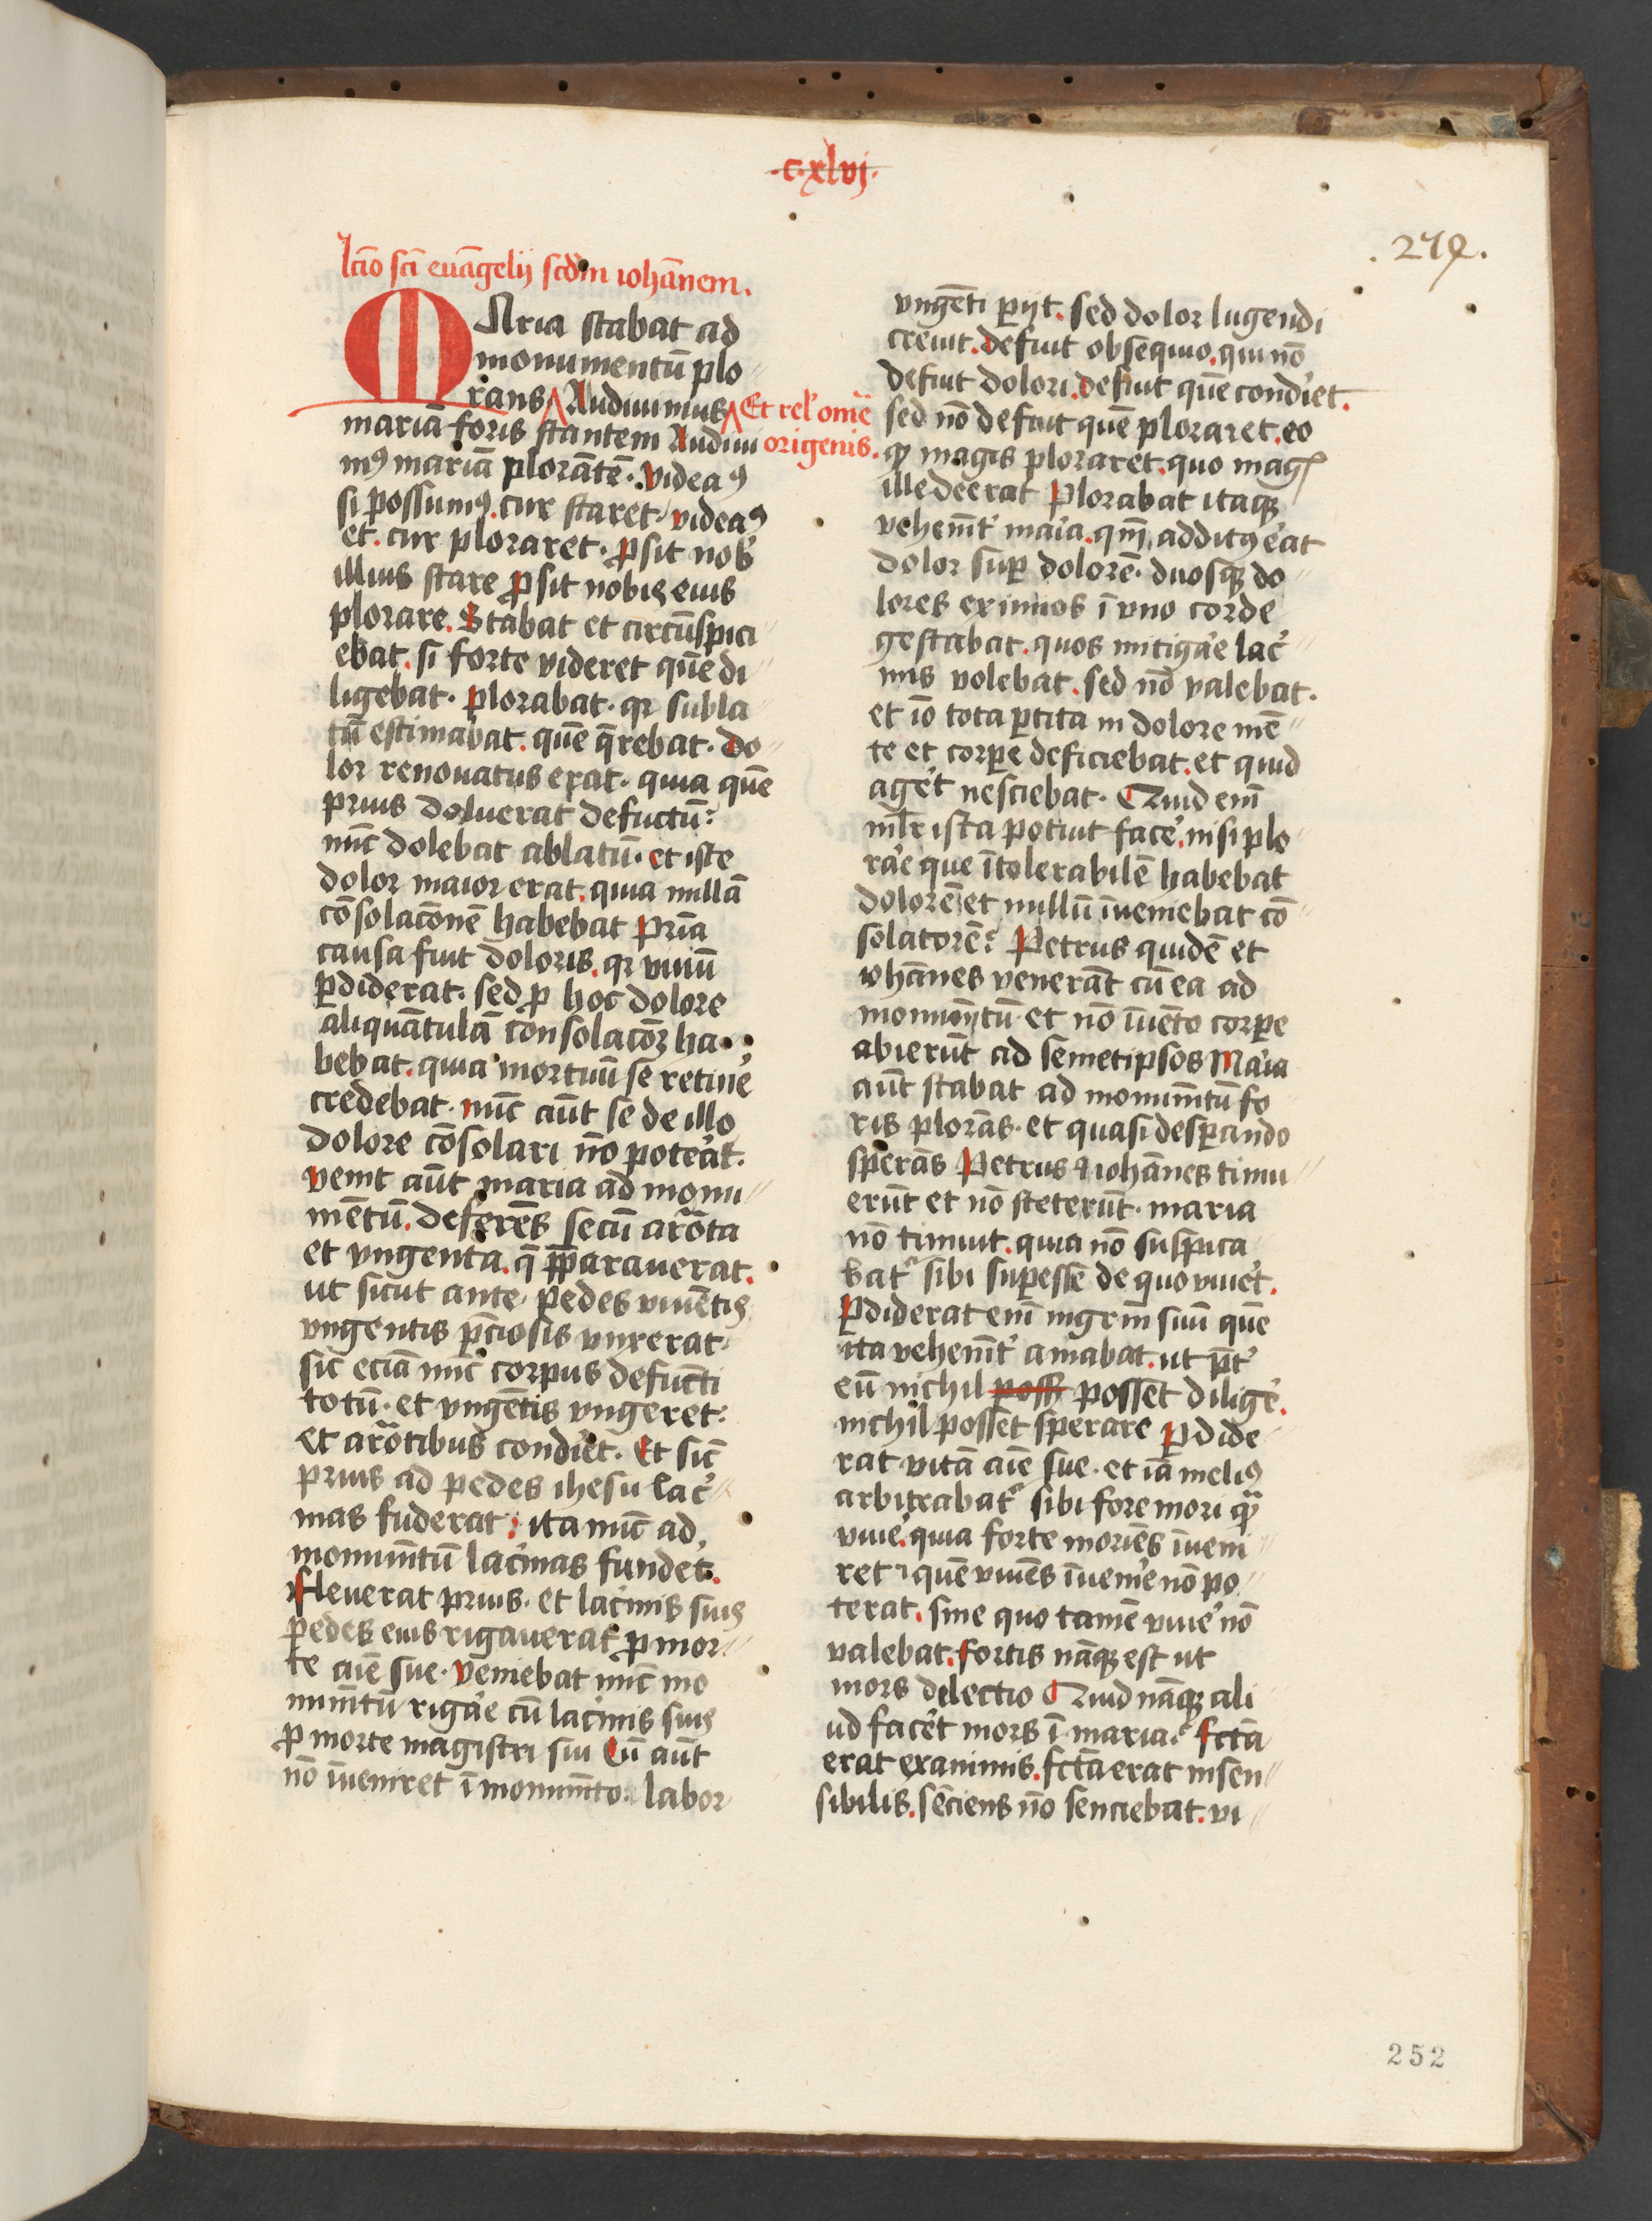 ·c·xlvj·
. 279.
lcō scī euāgelij scdm iohānem.
MAria stabat ad
monumentū plo
rans Audiuimus Et rel' omē
mariā foris stantem Audiui origenis.
mꝰ mariā plorātē. videaꝰ
si possumꝰ. cur staret. videaꝰ
et. cur ploraret. ꝓsit nob'
illius stare ꝓsit nobis eius
plorare. Stabat et circūspici
ebat. si forte videret quē di
ligebat. plorabat. qr subla
tū estimabat. quē q̄rebat. do
lor renouatus erat. quia quē
prius doluerat defūctū:
nūc dolebat ablatū. et iste
dolor maior erat. quia nullā
cōsolacōnē habebat Pria
causa fuit doloris. qr viuū
ꝑdiderat. sed ꝓ hoc dolore
aliquātulā consolacōꝫ ha
bebat. quia mortuū se retine'
credebat. nūc aūt se de illo
dolore cōsolari nō poteāt.
venit aūt maria ad monu
mētū. deferēs secū arōta
et vngenta. q̄ p̄parauerat.
ut sicut ante pedes viuētis
vngentis p̄ciosis vnxerat.
sic eciā nūc corpus defūcti
totū. et vngētis vngeret:
et arōtibus condiet. Et sic
prius ad pedes ihesu lac'
mas fuderat: ita nūc ad
monumtū lac'mas fundet.
Fleuerat prius. et lac'mis suis
pedes eius rigauerat ꝓ mor
te aīe sue. veniebat nūc mo
numtū rigae cū lac'mis suis
ꝓ morte magistri sui Cū aūt
nō īueniret ī monumto. labor
vngēti ꝑijt. sed dolor lugendi
creuit. defuit obsequio. qui nō
defuit dolori. defuit quē condiet.
sed nō defuit quē ploraret. eo
qꝫ magis ploraret. quo mag
ille deerat Plorabat itaqꝫ
vehemt' maia. qm̄ additꝰ eat
dolor suꝑ dolorē. duosqꝫ do
lores eximios ī vno corde
gestabat. quos mitigae lac'
mis volebat. sed nō valebat.
et iō tota ꝑtita in dolore mē
te et corpe deficiebat. et quid
aget nesciebat. Quid eni
mlr ista potuit face'. nisi plo
rae que ītolerabilē habebat
dolorē et nullū īueniebat cō
solatorē? Petrus quidē et
iohānes venerāt cū ea ad
monumtū. et nō īuēto corpe
abierūt ad semetipsos Maia
aūt stabat ad monumtū fo
ris plorās. et quasi desꝑando
sperās Petrus ⁊ iohānes timu
erūt et nō steterūt. maria
nō timuit. quia nō suspica
bat' sibi suꝑesse de quo viuet.
Pdiderat eni mgrm suū quē
ita vehemt' amabat. ut p̄t'
eū nichil poss posset dilige'.
nichil posset sperare Pdide
rat vitā aīe sue. et iā meliꝰ
arbitrabat' sibi fore mori qꝫ
viue'. quia forte moriēs īueni
ret quē viuēs īuenie' nō po
terat. sine quo tamē viue' nō
valebat. fortis nāqꝫ est ut
mors dilectio Quid nāqꝫ ali
ud facet mors ī maria? fctā
erat exanimis. fctā erat insen
sibilis. sēciens nō senciebat. vi
252